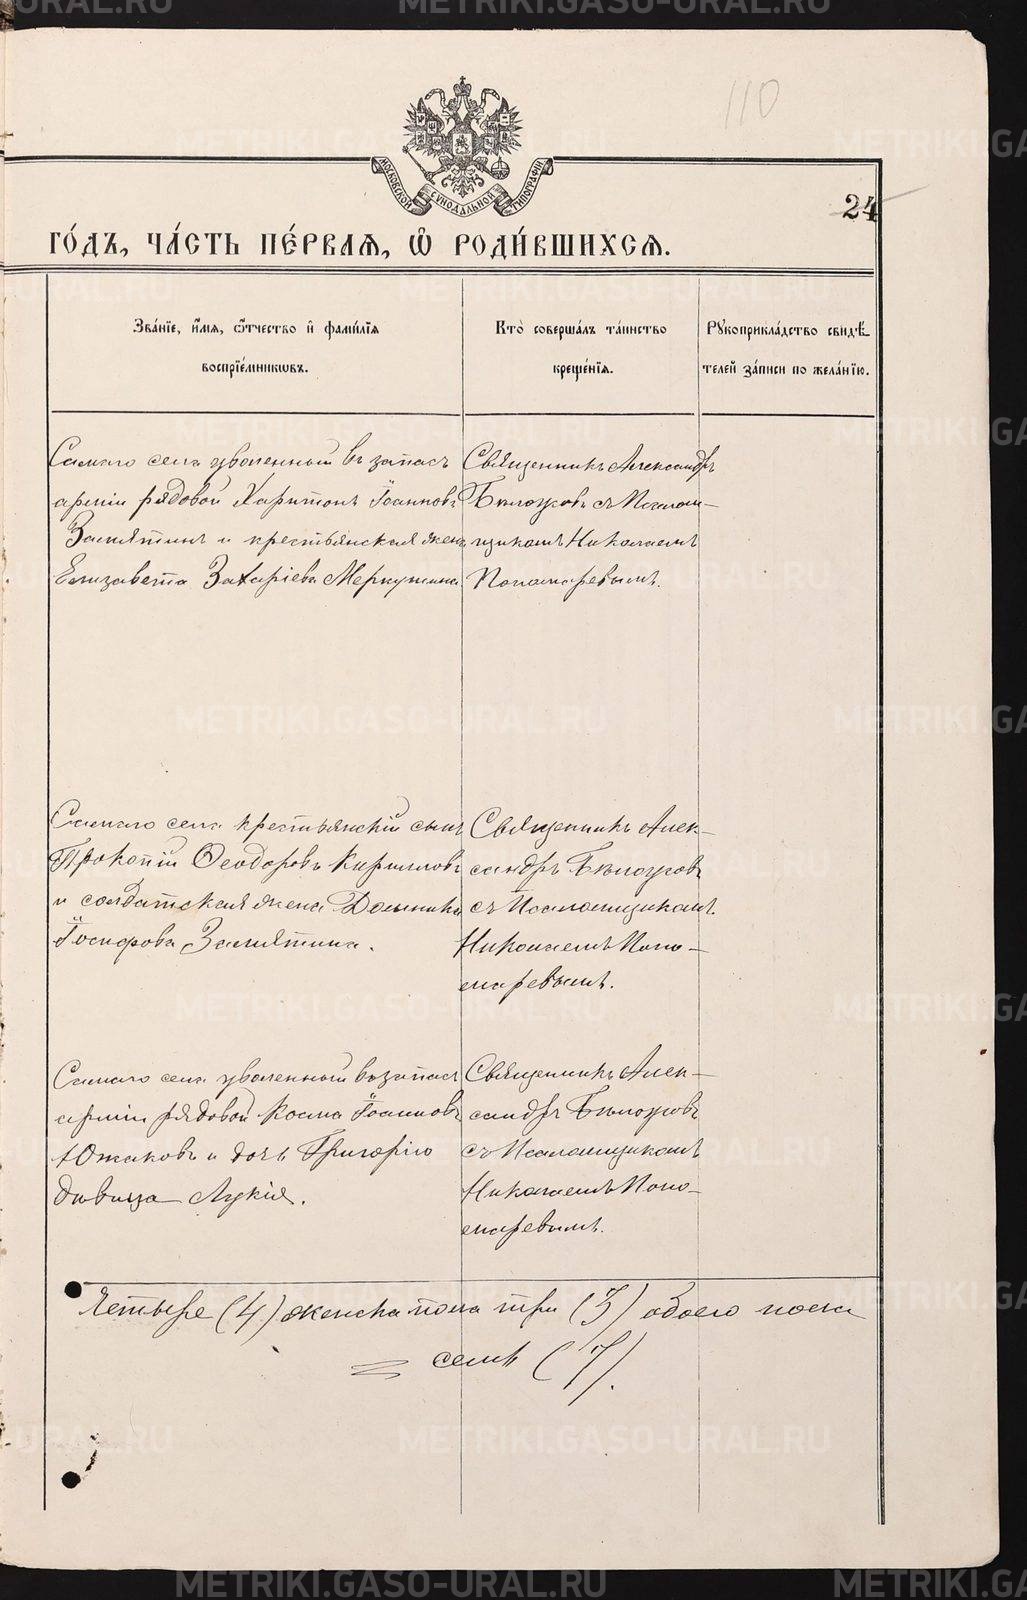 110
МОСКОВСКОЙ СѴНОДАЛЬНОЙ ТИПОГРАФІИ
24
ГО́ДЪ, ЧА́СТЬ ПЕ́РВАЯ, Ѽ РОДИ́ВШИХСЯ.
Зва́нїе, и҆́мѧ, ѻ҆́тчество и҆ фами́лїѧ
воспрїе́мникѡвъ.
Кто̀ соверша́лъ та́инство
креще́нїѧ.
Рꙋкоприкла́дство свидѣ́
телей за́писи по жела́нїю.
Самаго села уволенный въ запасъ
арміи рядовой Харитонъ Іоанновъ
Замятинъ и крестьянская жена
Елизавета Захаріева Меркушина
Священникъ Александръ
Бѣлоусовъ съ Псалом-
щикомъ Николаемъ
Пономаревымъ.
Самаго села крестьянскій сынъ
Прокопій Ѳеодоровъ Кирилловъ
и солдатская жена Домника
Іосифова Замятина.
Священникъ Алек-
сандръ Бѣлоусовъ
съ Псаломщикомъ
Николаемъ Поно-
маревымъ.
Самаго села уволенный въ запасъ
арміи рядовой Косма Іоанновъ
Южаковъ и дочь Григорія
дѣвица Лукія.
Священникъ Алек-
сандръ Бѣлоусовъ
съ Псаломщикомъ
Николаемъ Поно-
маревымъ.
Четыре (4) женска пола три (3) обоего пола
семь (7).
METRIKI.GASO-URAL.RU